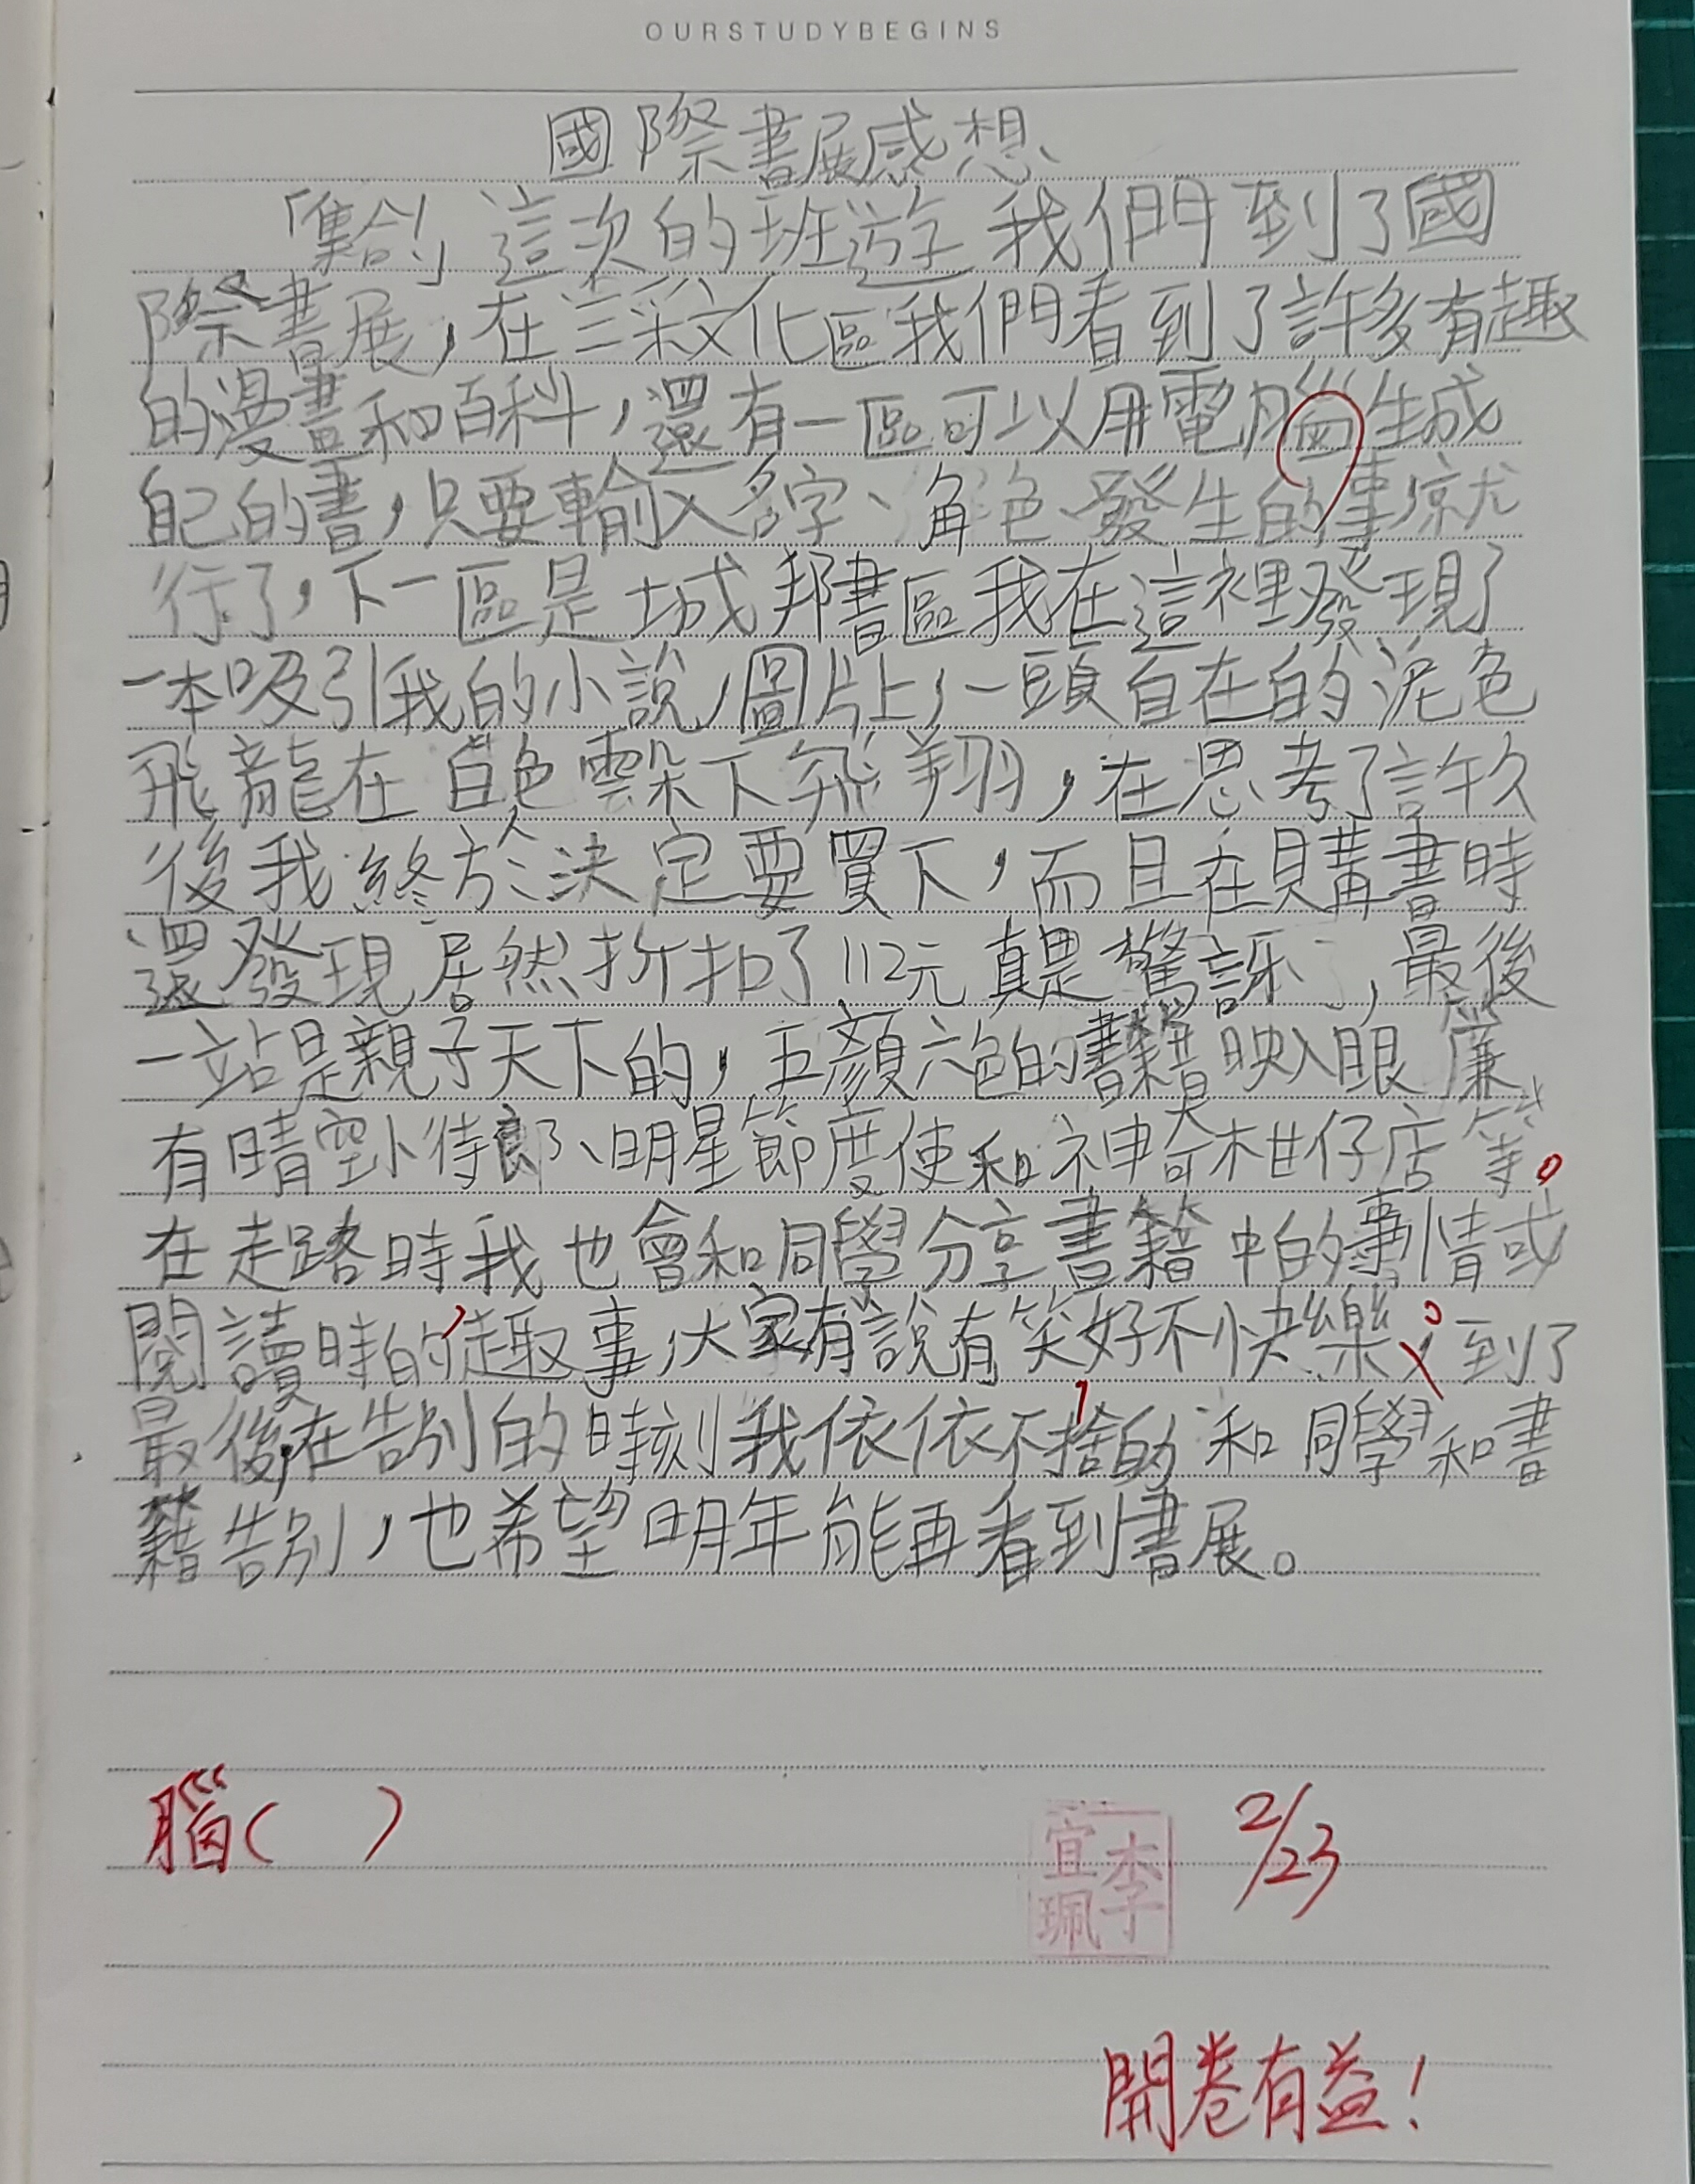 OURSTUDYBEGINS
國際書展感想
「集合!」這次的班遊我們到了國
際書展,在三采文化區我們看到了許多有趣
的漫畫和百科,還有一區可以用電腦生成
自己的書,只要輸入名字、角色、發生的事就
行了,下一區是城邦書區我在這裡發現了
一本吸引我的小說,圖片上,一頭自在的泥色
飛龍在白色雲朵下飛翔,在思考了許久
後我終於決定要買下,而且在購書時
還發現居然折扣了112元真是驚訝,最後
一站是親子天下的,五顏六色的書籍映入眼廉
有晴空小侍郎、明星節度使和神奇柑仔店等。
在走路時我也會和同學分享書籍中的事情或
閱讀時的趣事,大家有說有笑好不快樂。到了
最後,在告別的時刻我依依不捨的和同學和書
籍告別,也希望明年能再看到書展。
腦( )
李宜珮
2/23
開卷有益!